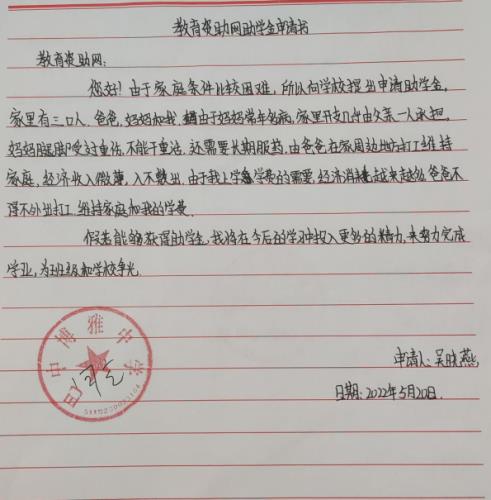 教育资助网助学金申请书
教育资助网:
您好!由于家庭条件比较困难,所以向学校提出申请助学金,
家里有三口人、爸爸,妈妈和我,由于妈妈常年多病,家里开支几乎由父亲一人承担,
妈妈腿脚受过重伤,不能干重活,还需要长期服药,由爸爸在家周边地方打工维持
家庭,经济收入微薄,入不敷出,由于我上学学费的需要,经济消耗越来越多,爸爸不
得不外出打工,维持家庭和我的学费,
假若能够获得助学金,我将在今后的学习中投入更多的精力,来努力完成
学业,为班级和学校争光.
巴中博雅中学
申请人:吴晓燕
日期:2022年5月20日.